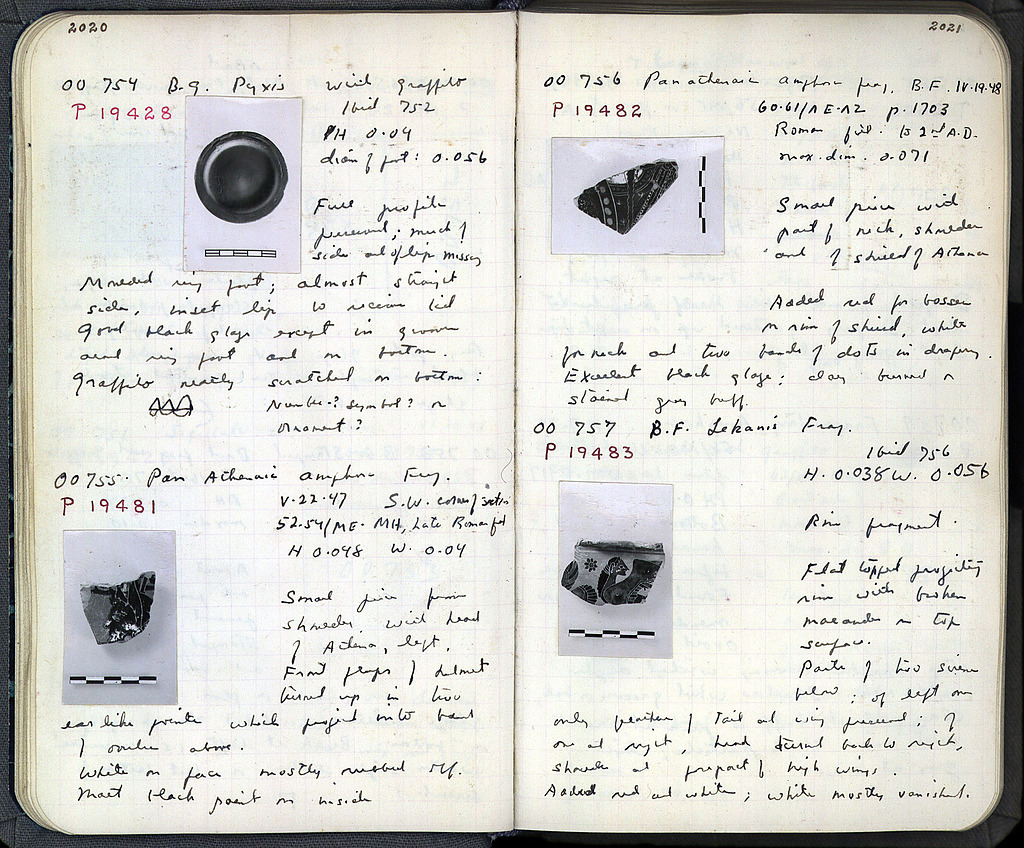 2020
OO 754 B.g. Pyxis with graffito
P 19428 Ibid 752
PH 0.04
diam of foot: 0.056
Full profile
preserved; much of
side and of lip missing
Moulded ring foot; almost straight
sides, inset lip to receive lid
Good black glaze except in groove
around ring foot and on bottom.
Graffito neatly scratched on bottom:
Number? symbol? or
ornament?
OO 755. Pan Athenaic amphora Frag.
P 19481 V-22-47 S.W. corner of section
52-54/ME-MH, Late Roman fill
H 0.048 W. 0.04
Small piece from
shoulder with head
of Athena, left.
Front flaps of helmet
turned up in two
ear like points which project onto band
of above.
White on face mostly rubbed off.
Matt black paint on inside
2021
OO 756 Panathenaic amphora frag. B.F. IV-19-48
P 19482 60-61/ΛE-ΛZ p. 1703
Roman fill. to 2nd A.D.
max. dim. 0.071
Small piece with
part of neck, shoulder
and of shield of Athena
Added red for bosses
on rim of shield, white
for neck and two bands of dots in drapery.
Excellent black glaze; clay burned or
stained grey buff.
OO 757 B.F. Lekanis Frag.
P 19483 Ibid 756
H. 0.038 W. 0.056
Rim fragment.
Flat topped projecting
rim with broken
maeander on top
surface.
Parts of two sirens
below; of left one
only feathers of tail and wing preserved; of
one at right, head turned back to right,
shoulder and forepart of high wings.
Added red and white; white mostly vanished.